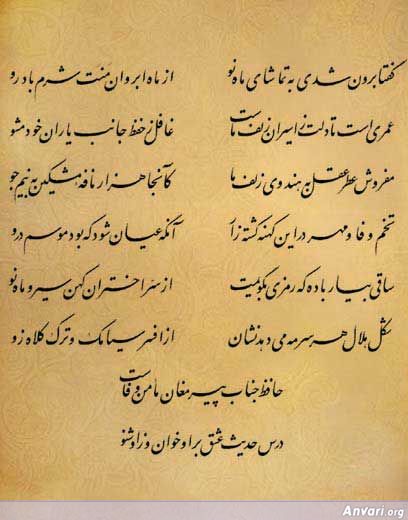 گفتا برون شدی به تماشای ماه نو از ماه ابروان منت شرم باد رو
عمریست تا دلت ز اسیران زلف ماست غافل ز حفظ جانب یاران خود مشو
مفروش عطر عقل به هندوی زلف ما کآنجا هزار نافهٔ مشکین به نیم جو
تخم وفا و مهر در این کهنه کشته‌زار آنگه عیان شود که بود موسم درو
ساقی بیار باده که رمزی بگویمت از سر اختران کهن سیر و ماه نو
شکل هلال هر سر مه می‌دهد نشان از افسر سیامک و ترک کلاه زو
حافظ جناب پیر مغان مامن وفاست
درس حدیث عشق بر او خوان و ز او شنو
Anvari.org